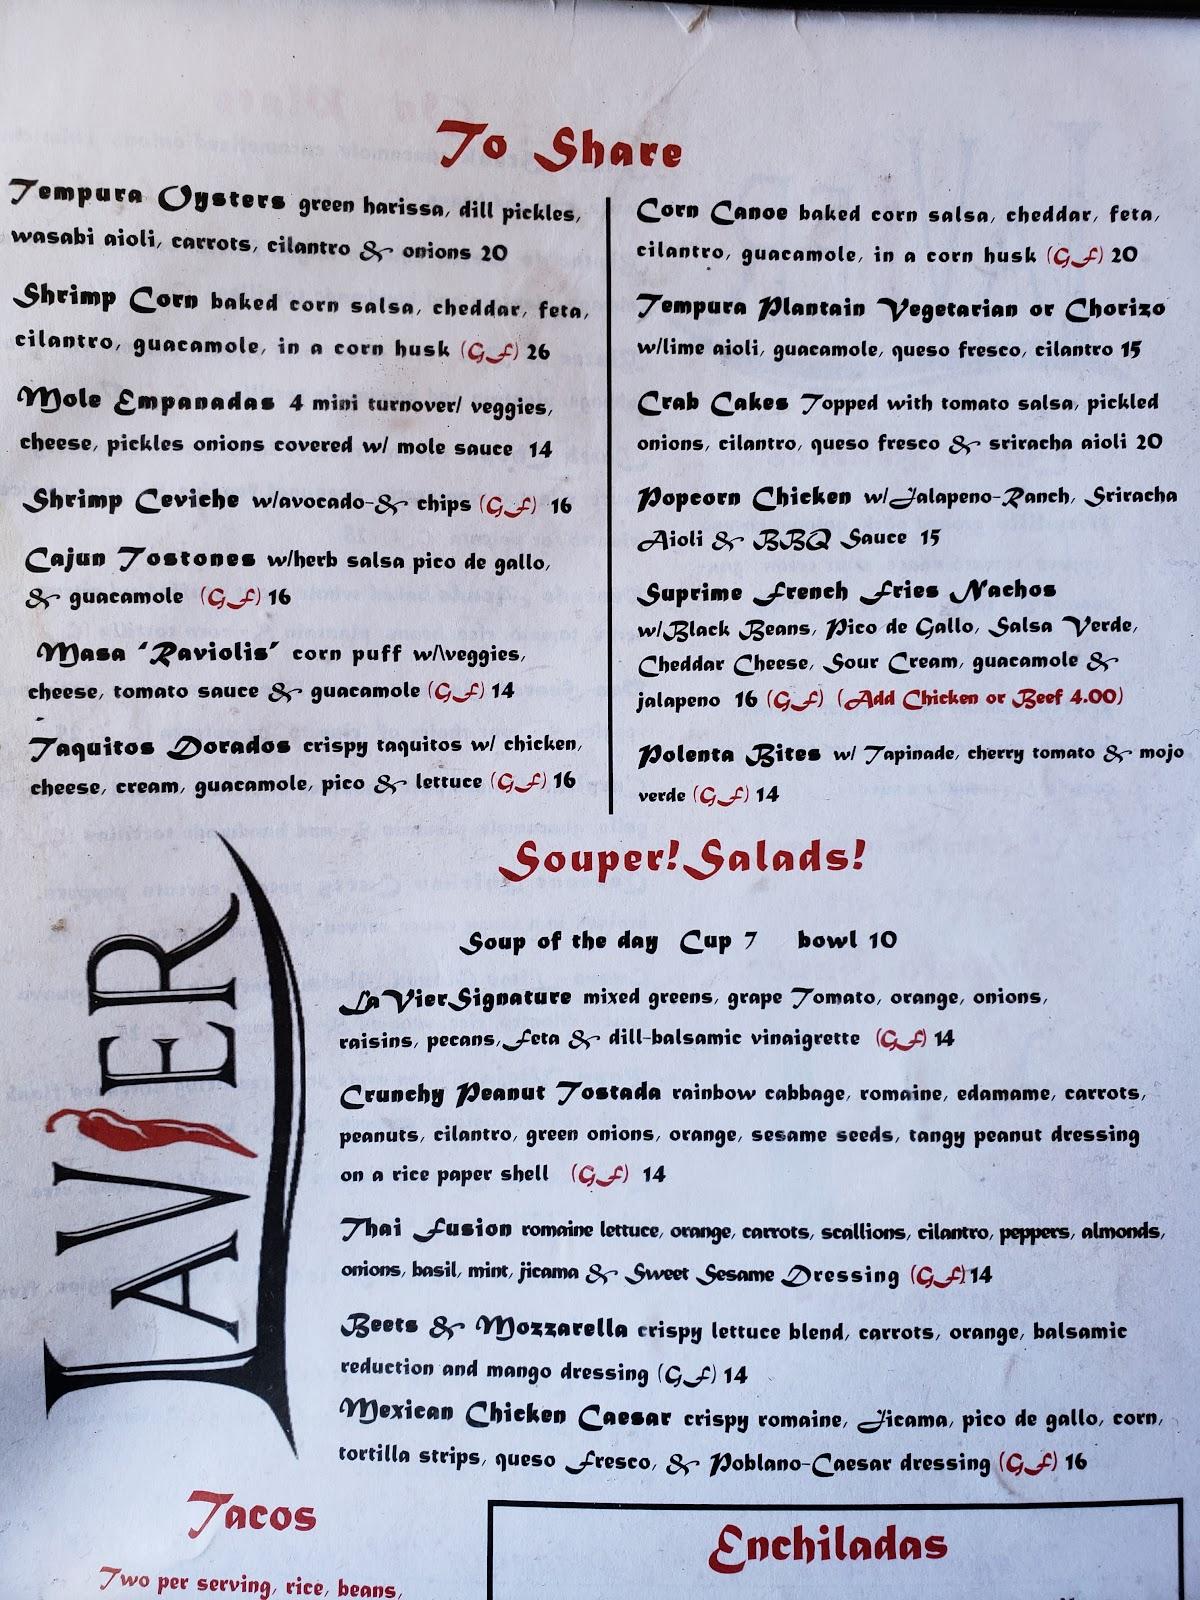 To Share
Tempura Oysters green harissa, dill pickles,
wasabi aioli, carrots, cilantro & onions 20
Shrimp Corn baked corn salsa, cheddar, feta,
cilantro, guacamole, in a corn husk (GF) 26
Mole Empanadas 4 mini turnover/ veggies,
cheese, pickles onions covered w/ mole sauce 14
Shrimp Ceviche w/avocado-& chips (GF) 16
Cajun Tostones w/herb salsa pico de gallo,
& guacamole (GF) 16
Masa 'Raviolis' corn puff w/\veggies,
cheese, tomato sauce & guacamole (GF) 14
Taquitos Dorados crispy taquitos w/ chicken,
cheese, cream, guacamole, pico & lettuce (GF) 16
Corn Canoe baked corn salsa, cheddar, feta,
cilantro, guacamole, in a corn husk (GF) 20
Tempura Plantain Vegetarian or Chorizo
w/lime aioli, guacamole, queso fresco, cilantro 15
Crab Cakes Topped with tomato salsa, pickled
onions, cilantro, queso fresco & sriracha aioli 20
Popcorn Chicken w/Jalapeno-Ranch, Sriracha
Aioli & BBQ Sauce 15
Suprime French Fries Nachos
w/Black Beans, Pico de Gallo, Salsa Verde,
Cheddar Cheese, Sour Cream, guacamole &
jalapeno 16 (GF) (Add Chicken or Beef 4.00)
Polenta Bites w/ Tapinade, cherry tomato & mojo
verde (GF) 14
Souper! Salads!
Soup of the day Cup 7 bowl 10
La Vier Signature mixed greens, grape Tomato, orange, onions,
raisins, pecans, Feta & dill-balsamic vinaigrette (GF) 14
Crunchy Peanut Tostada rainbow cabbage, romaine, edamame, carrots,
peanuts, cilantro, green onions, orange, sesame seeds, tangy peanut dressing
on a rice paper shell (GF) 14
Thai Fusion romaine lettuce, orange, carrots, scallions, cilantro, peppers, almonds,
onions, basil, mint, jicama & Sweet Sesame Dressing (GF) 14
Beets & Mozzarella crispy lettuce blend, carrots, orange, balsamic
reduction and mango dressing (GF) 14
Mexican Chicken Caesar crispy romaine, Jicama, pico de gallo, corn,
tortilla strips, queso Fresco, & Poblano-Caesar dressing (GF) 16
LAVIER
Tacos
Two per serving, rice, beans,
Enchiladas